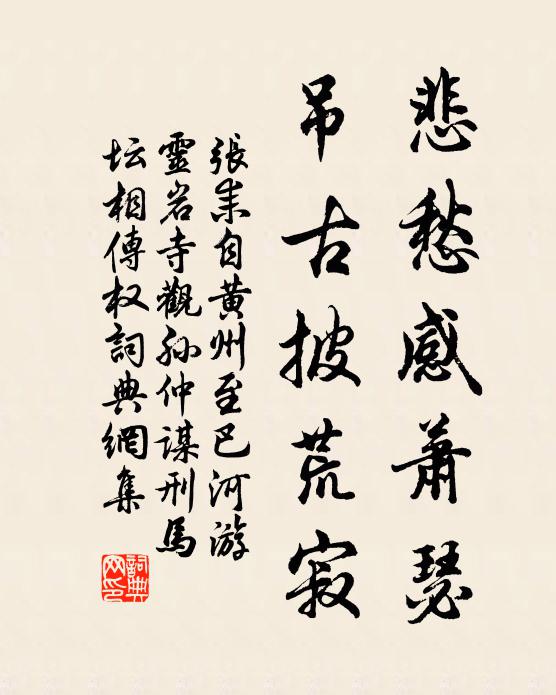 悲愁感蕭瑟
吊古披荒寂
張耒自黃州至巴河游
靈岩寺觀孙仲謀刑馬
坛相傳权詞典網集
詞典网印